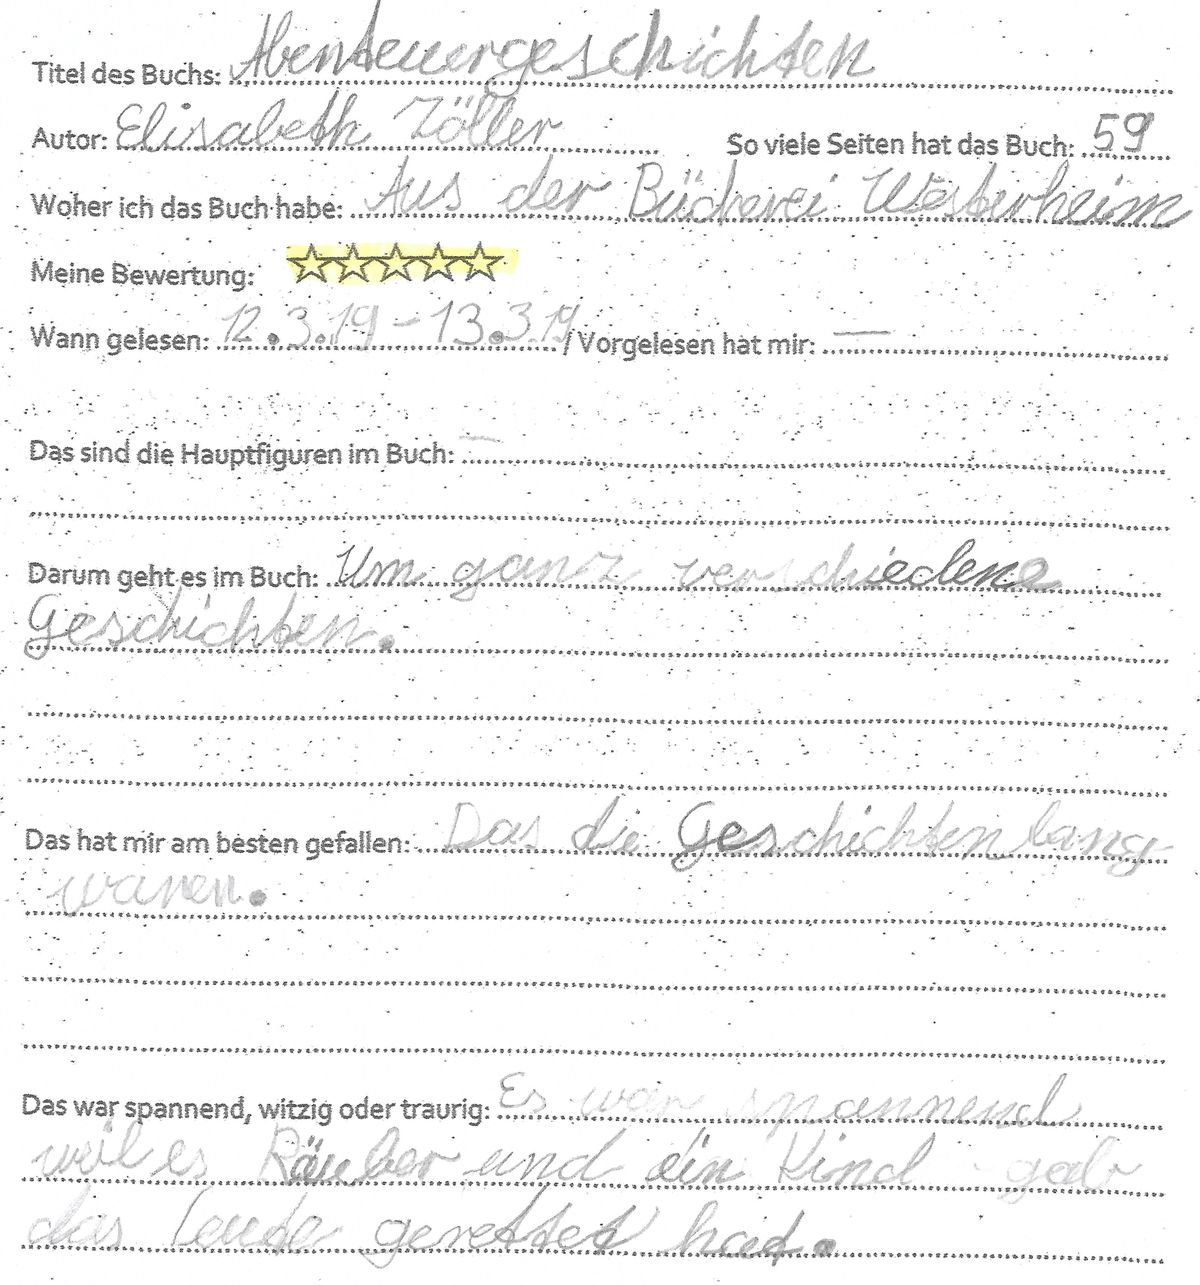 Titel des Buchs: Abenteuergeschichten
Autor: Elisabeth Zöller So viele Seiten hat das Buch: 59
Woher ich das Buch habe: Aus der Bücherei Westerheim
Meine Bewertung: ☆☆☆☆☆
Wann gelesen: 12.3.19 - 13.3.19 / Vorgelesen hat mir: —
Das sind die Hauptfiguren im Buch: —
Darum geht es im Buch: Um ganz verschiedene
Geschichten.
Das hat mir am besten gefallen: Das die Geschichten lang
waren.
Das war spannend, witzig oder traurig: Es war spannend
weil es Räuber und ein Kind gab
das Leute gerettet hat.